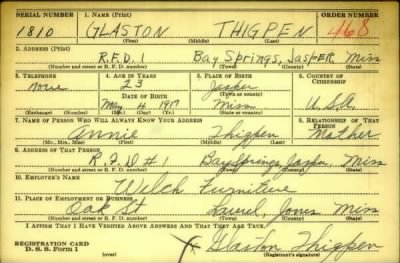 SERIAL NUMBER 1. NAME (Print) ORDER NUMBER
1810 GLASTON THIGPEN 468
(First) (Middle) (Last)
2. ADDRESS (Print)
R.F.D. 1 Bay Springs, Jasper Miss
(Number and street or R. F. D. number) (Town) (County) (State)
3. TELEPHONE 4. AGE IN YEARS 5. PLACE OF BIRTH 6. COUNTRY OF CITIZENSHIP
None 23 Jasper
DATE OF BIRTH (Town or county)
May 4 1917 Miss U.S.A.
(Exchange) (Number) (Mo.) (Day) (Yr.) (State or country)
7. NAME OF PERSON WHO WILL ALWAYS KNOW YOUR ADDRESS 8. RELATIONSHIP OF THAT PERSON
Annie Thigpen Mother
(Mr., Mrs., Miss) (First) (Middle) (Last)
9. ADDRESS OF THAT PERSON
R.F.D #1 Bay Springs, Jasper, Miss
(Number and street or R. F. D. number) (Town) (County) (State)
10. EMPLOYER'S NAME
Welch Furniture
11. PLACE OF EMPLOYMENT OR BUSINESS
Oak St Laurel, Jones Miss
(Number and street or R. F. D. number) (Town) (County) (State)
I AFFIRM THAT I HAVE VERIFIED ABOVE ANSWERS AND THAT THEY ARE TRUE.
REGISTRATION CARD
D. S. S. Form 1 (over) Glaston Thigpen
(Registrant's signature)